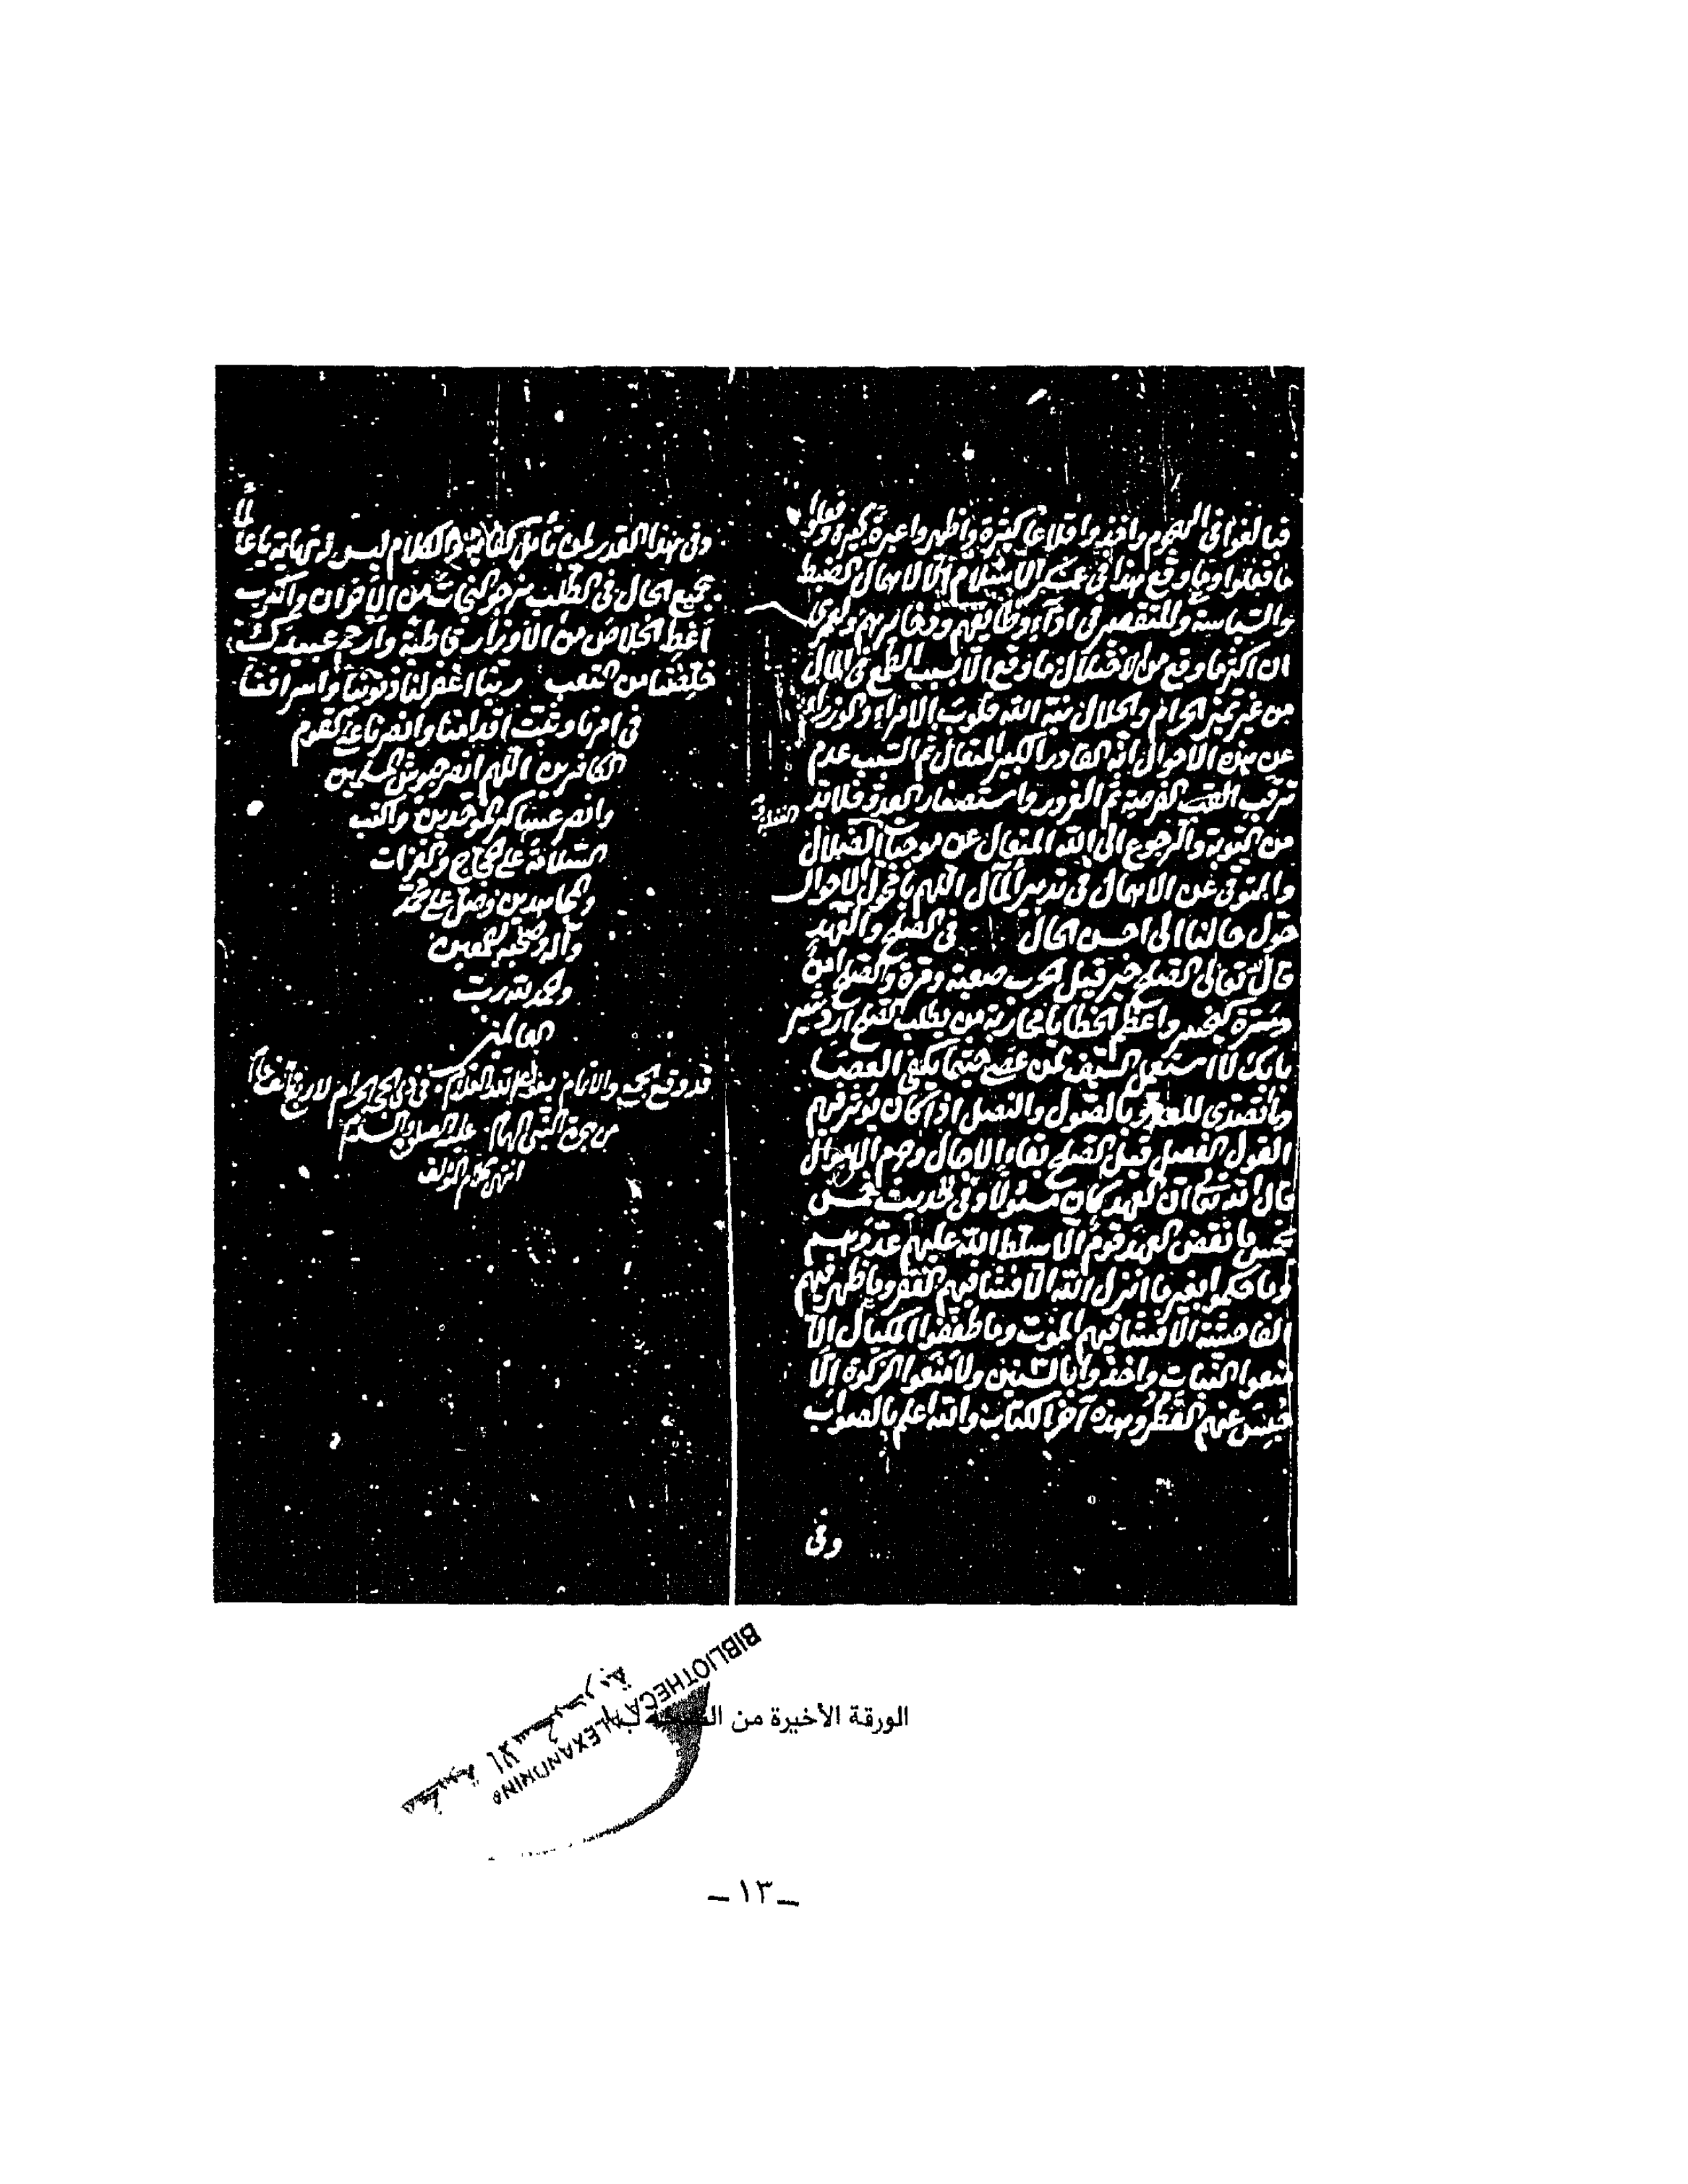 فبالغوا فى الهجوم واخذوا قلاعا كثيرة واظهروا عبرة كبيرة وفعلوا
ما فعلوا وما وقع هذا فى عسكر الاسلام الا لاهمال الضبط
والسياسة وللتقصير فى اداء وظايفهم وذخايرهم ولعمرى
ان اكثر ما وقع من الاختلال ما وقع الا بسبب الطمع فى المال
من غير تميز الحرام والحلال نبه الله قلوب الامراء والوزراء
عن هذه الاحوال انه القادر الكبير المتعال ثم السبب عدم
ترقب الفرصة ثم الغرور واستصغار العدو فلا بد
الغفلة و
من التوبة والرجوع الى الله المتعال عن موجبات الضلال
والتوقى عن الاهمال فى تدبير المآل اللهم يا محول الاحوال
حول حالنا الى احسن الحال فى الصلح والعهد
قال تعالى الصلح خير قيل الحرب صعبة ومرة والصلح امن
ومسرة واعظم الخطايا محاربة من يطلب الصلح اردشير
بابك لا استعمل السيف لمن عصى حيثما يكفى العصا
وما نتصدى للعدو بالصول والنصل اذا كان يؤثر فيهم
القول الفصل قيل الصلح بقاء الاجال وحرم الاموال
قال الله تعالى ان العهد كان مسئولا وفى الحديث خمس
بخمس ما نقض العهد قوم الا سلط الله عليهم عدوهم
وما حكموا بغير ما انزل الله الا فشا فيهم الفقر وما ظهر فيهم
الفاحشة الا فشا فيهم الموت وما طففوا المكيال الا
منعوا النبات واخذوا بالسنين ولا منعوا الزكوة الا
حبس عنهم القطر وهذه آخر الكتاب والله اعلم بالصواب
وفى
وفى هذا القدر لمن تأمل كفاية والكلام ليس له نهاية يا عالما
بجميع الحال فى الطلب نرجو النجاة من الأحزان والكرب
أعط الخلاص من الأوزار قاطبة وارحم عبيدك
خلصنا من التعب ربنا اغفر لنا ذنوبنا واسرافنا
فى امرنا وثبت اقدامنا وانصرنا على القوم
الكافرين اللهم انصر جيوش المسلمين
وانصر عساكر الموحدين واكتب
السلامة على الحجاج والغزات
والمجاهدين وصل على محمد
وآله وصحبه اجمعين
والحمد لله رب
العالمين
قد وقع الجمع والاتمام بعون الله العلام فى ذى الحجة الحرام لاربع
من هجرة النبى الهمام عليه الصلوة والسلام
انتهى كلام المؤلف
الورقة الأخيرة من
BIBLIOTHECA ALEXANDRINA
مكتبة الإسكندرية
– ١٣ –